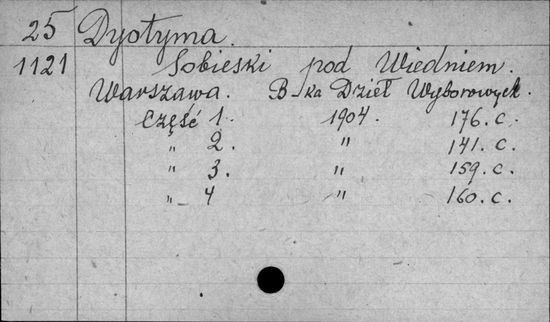 25 Dyotyma.
1121 Sobieski pod Wiedniem.
Warszawa. B-ka Dzieł Wyborowych.
Część 1. 1904. 176. c.
„ 2. „ 141. c.
„ 3. „ 159. c.
„ 4 „ 160. c.